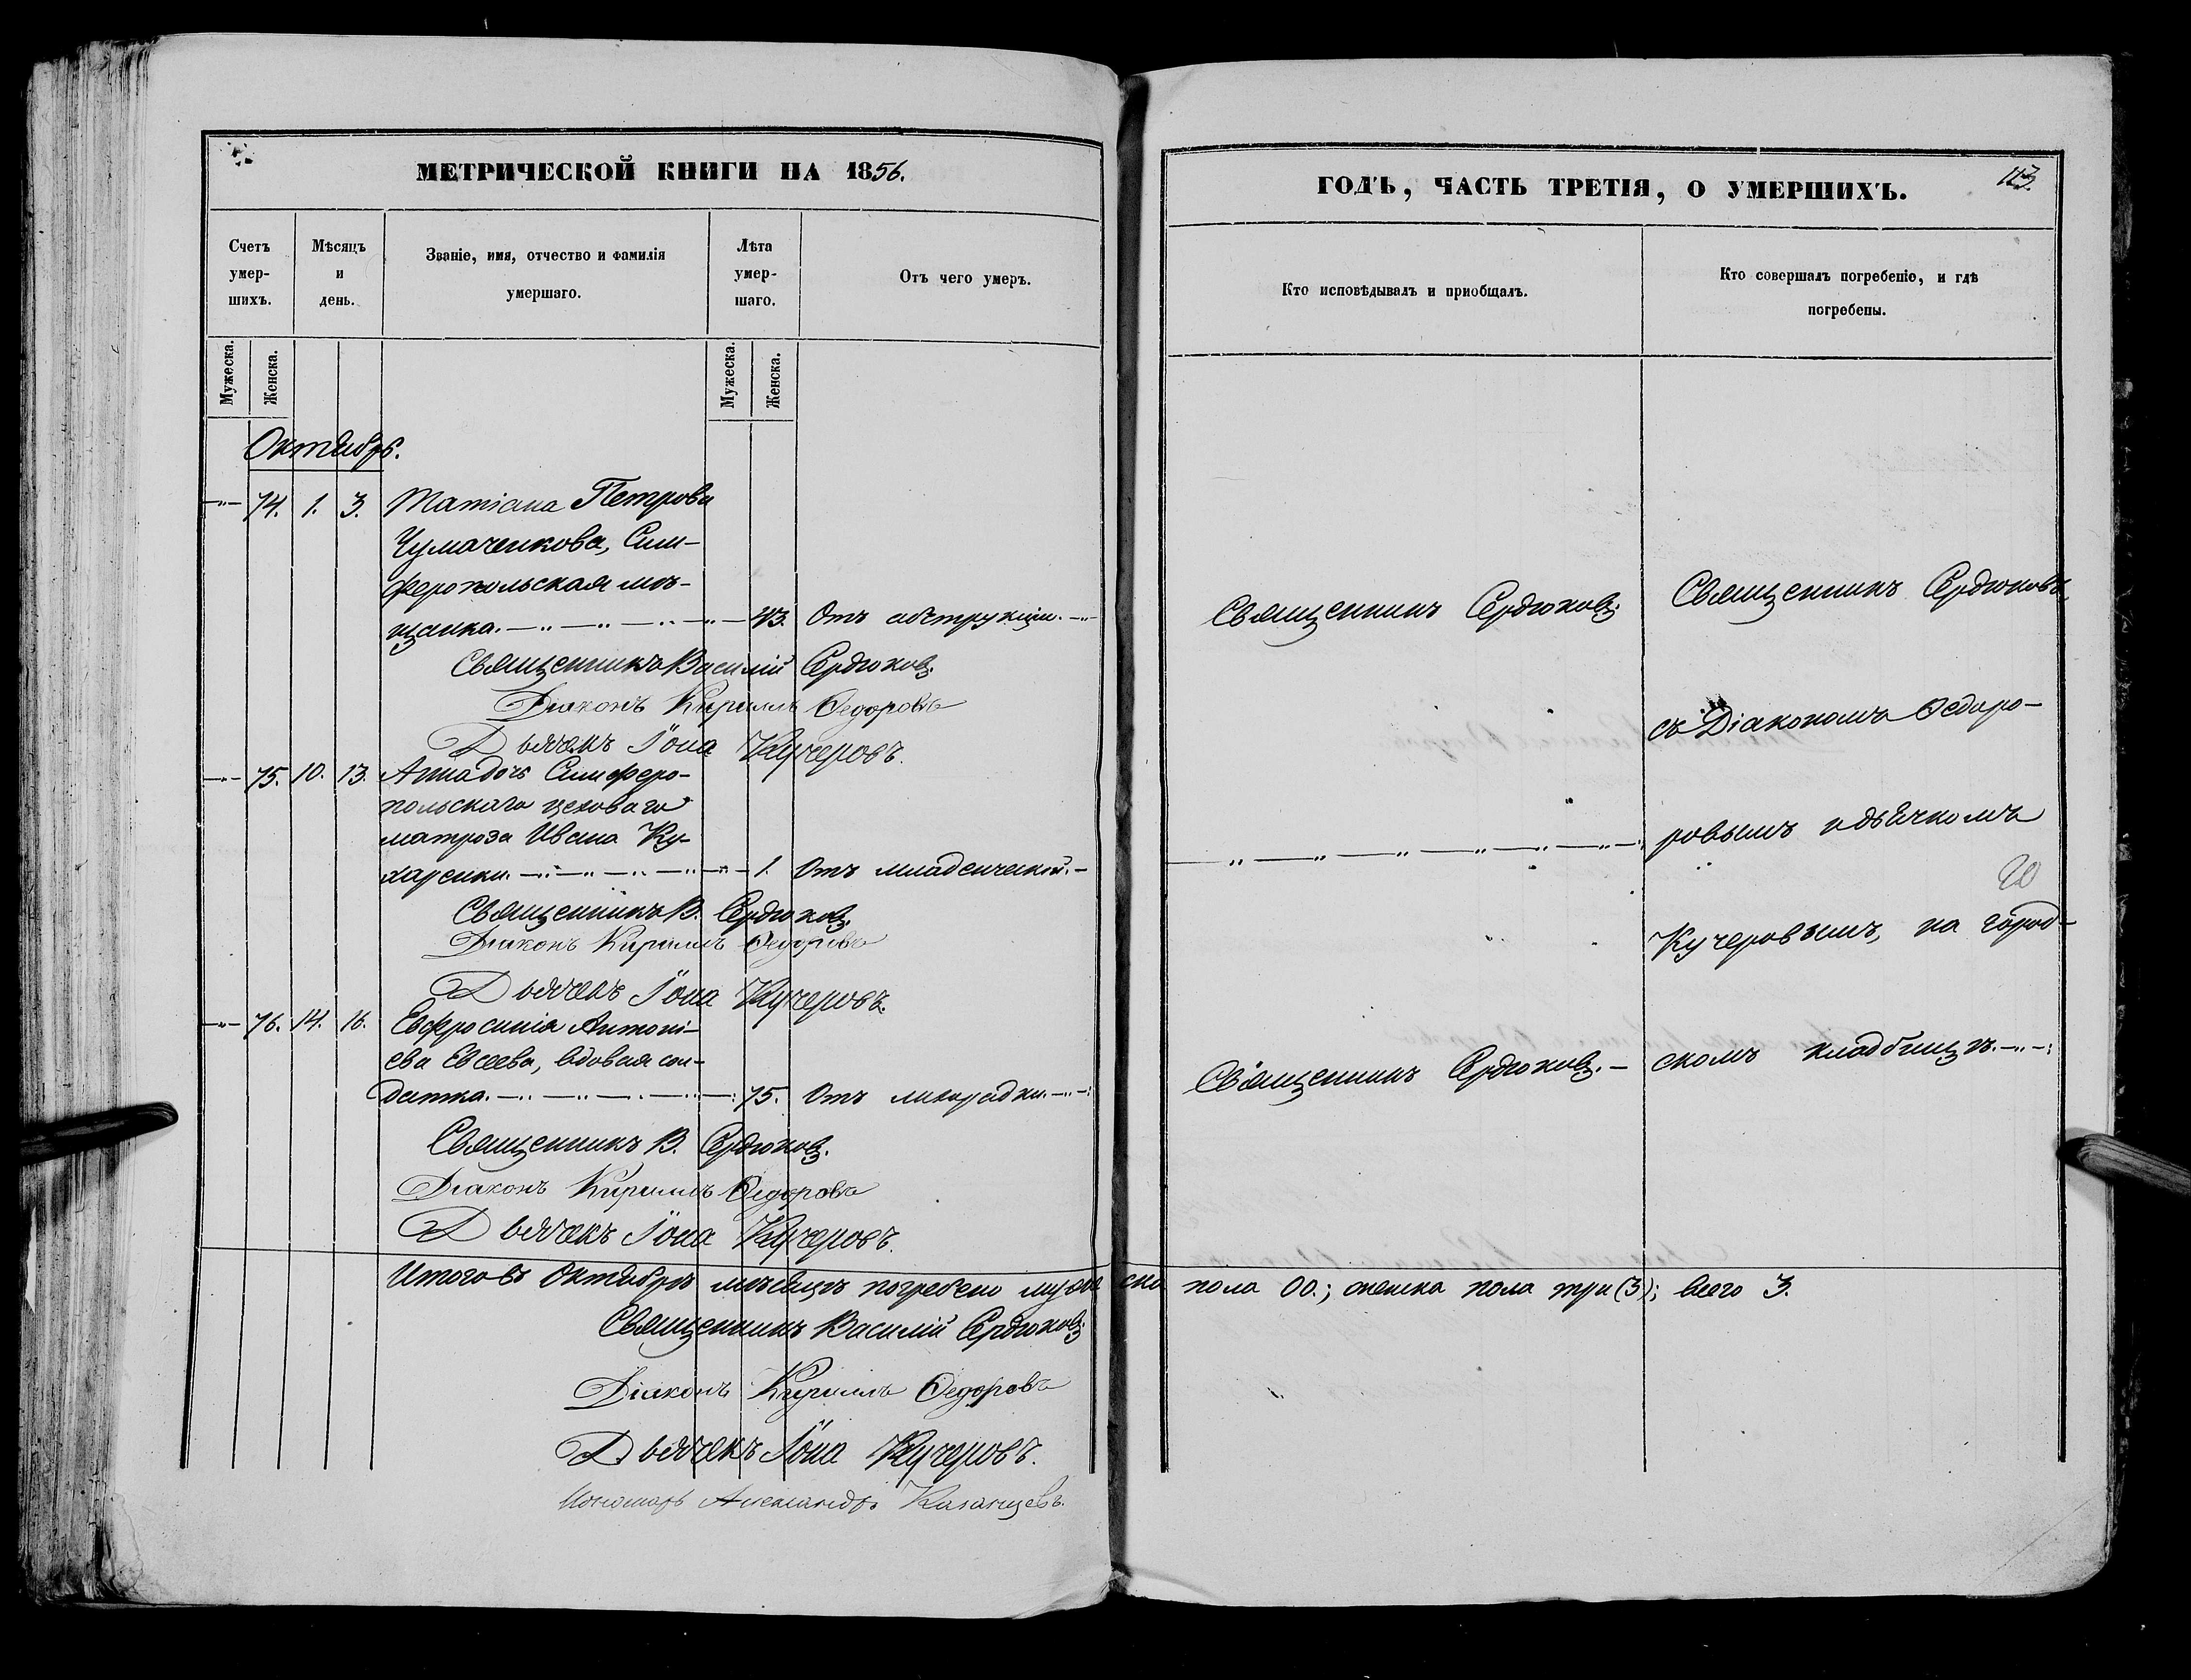 МЕТРИЧЕСКОЙ КНИГИ НА 1856.
Счетъ умер-шихъ.
Мѣсяцъ и день.
Званіе, имя, отчество и фамилія умершаго.
Лѣта умер-шаго.
Отъ чего умеръ.
Мужеска.
Женска.
Мужеска.
Женска.
Октябрь.
74. 1. 3. Татіана Петрова
Чумаченкова, Сим-
феропольская мѣ-
щанка. 43. Отъ обструкціи.
Священникъ Василій Сердюковъ.
Діаконъ Кириллъ Федоровъ
Дьячекъ Іона Кучеровъ.
75. 10. 13. Анна дочь Симферо-
польскаго цеховаго
матроза Ивана Ку-
харенки. 1. Отъ младенческой.
Священникъ В. Сердюковъ.
Діаконъ Кириллъ Федоровъ
Дьячекъ Іона Кучеровъ.
76. 14. 16. Евфросинія Антоні-
ева Евсеева, вдовая сол-
датка. 75. Отъ лихорадки.
Священникъ В. Сердюковъ.
Діаконъ Кириллъ Федоровъ
Дьячекъ Іона Кучеровъ.
Итого въ Октябрѣ мѣсяцѣ погребено мужеска пола 00.; женска пола три (3); всего 3.
Священникъ Василій Сердюковъ.
Діаконъ Кириллъ Федоровъ
Дьячекъ Іона Кучеровъ.
Пономарь Александръ Казанцевъ.
ГОДЪ, ЧАСТЬ ТРЕТІЯ, О УМЕРШИХЪ.
113.
Кто исповѣдывалъ и пріобщалъ.
Кто совершалъ погребеніе, и гдѣ погребены.
Священникъ Сердюковъ.
Священникъ Сердюковъ,
съ Діакономъ Федоро-
ровымъ и дьячкомъ
Кучеровымъ, на город-
Священникъ Сердюковъ.
скомъ кладбищѣ.